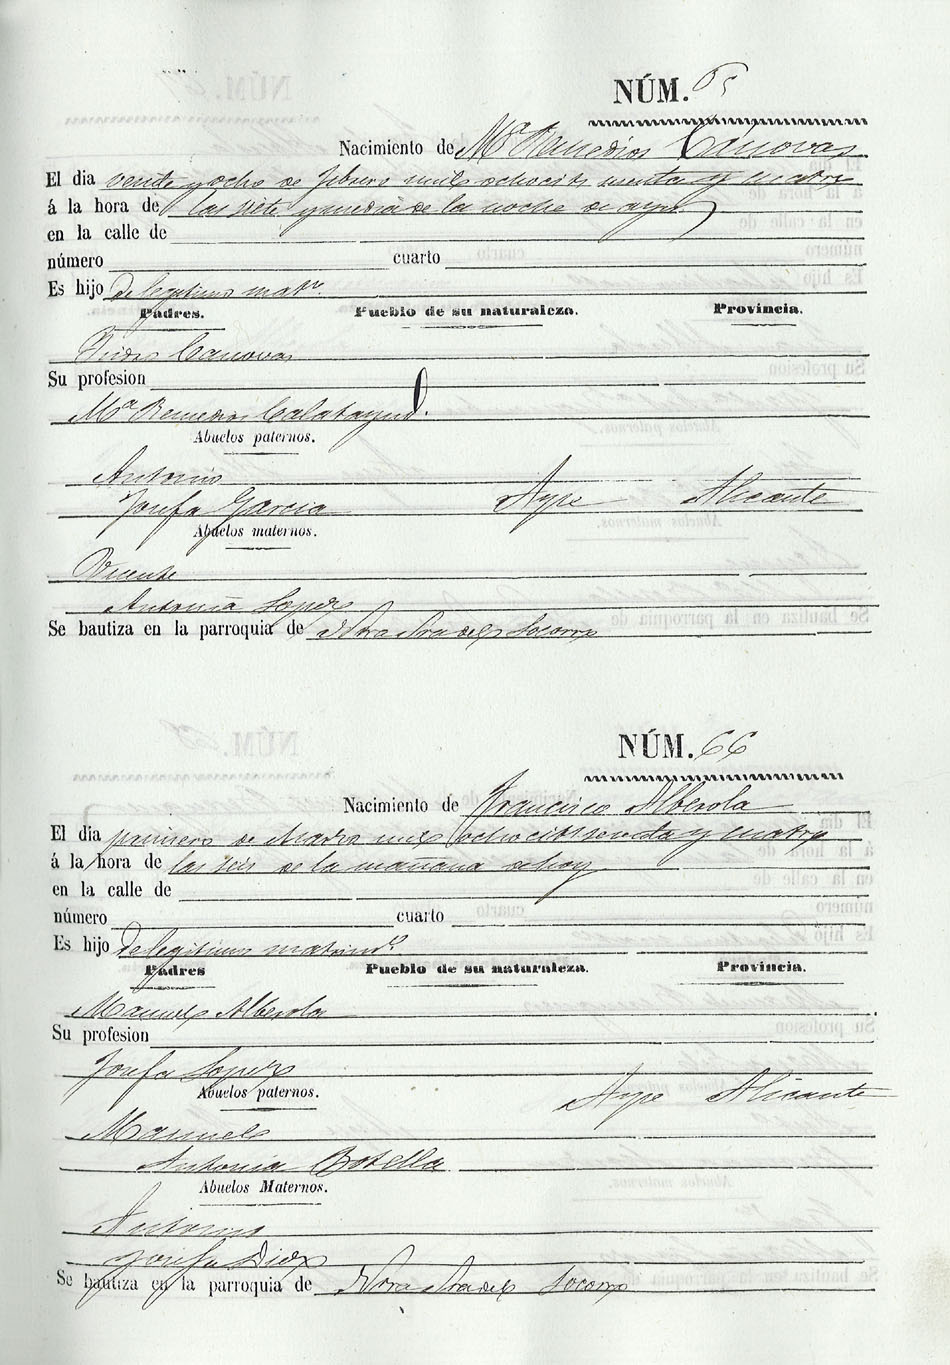 NÚM. 65
Nacimiento de Mª Remedios Cánovas
El dia veinte y ocho de febrero mil ochocits setenta y cuatro
á la hora de las siete y media de la noche de ayer
en la calle de
número cuarto
Es hijo de legitimo matr.º
Padres. Pueblo de su naturaleza. Provincia.
Canovas
Su profesion
Mª Remedios Calatayud.
Abuelos paternos.
Antonio
Josefa Garcia Aspe Alicante
Abuelos maternos.
Vicente
Antonia Lopez
Se bautiza en la parroquia de Ntra Sra del Socorro
NÚM. 66
Nacimiento de Francisco Alberola
El dia primero de Marzo mil ochocits setenta y cuatro
á la hora de las seis de la mañana de hoy
en la calle de
número cuarto
Es hijo de legitimo matrimº
Padres Pueblo de su naturaleza. Provincia.
Manuel Alberola
Su profesion
Josefa Lopez
Abuelos paternos.
Aspe Alicante
Manuel
Antonia Botella
Abuelos Maternos.
Antonio
Josefa Diez
Se bautiza en la parroquia de Ntra Sra del Socorro